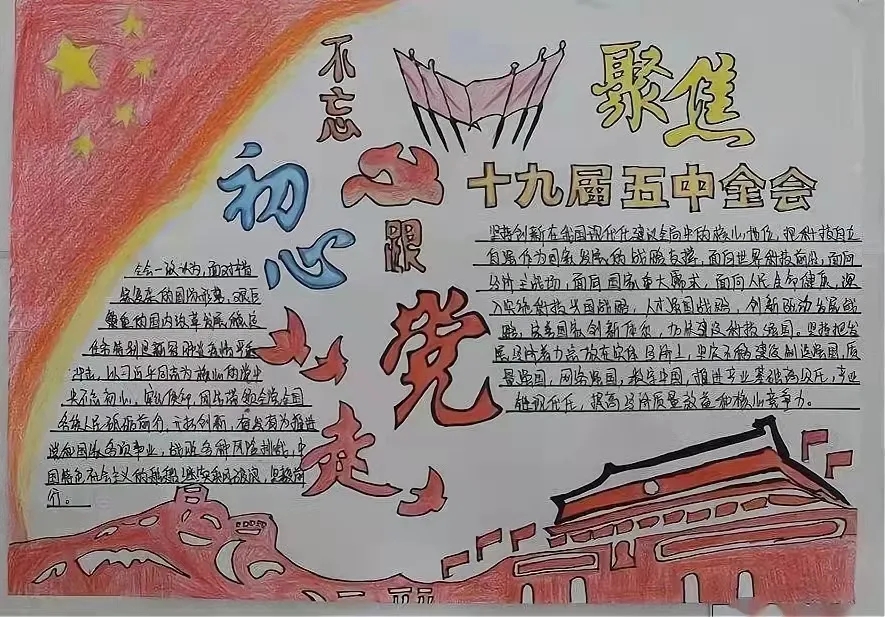 不忘
初心
跟
党
走
聚焦
十九届五中全会
全会一致认为，面对错
综复杂的国际形势、艰巨
繁重的国内改革发展稳定
任务特别是新冠肺炎疫情严重
冲击，以习近平同志为核心的党中
央不忘初心、牢记使命，团结带领全党全国
各族人民砥砺前行、开拓创新，奋发有为推进
党和国家各项事业，战胜各种风险挑战，中
国特色社会主义的航船继续乘风破浪，坚毅前
行。
坚持创新在我国现代化建设全局中的核心地位，把科技自立
自强作为国家发展的战略支撑，面向世界科技前沿，面向
经济主战场，面向国家重大需求，面向人民生命健康，深
入实施科教兴国战略，人才强国战略，创新驱动发展战
略，完善国家创新体系，加快建设科技强国。坚持把发
展经济着力点放在实体经济上，坚定不移建设制造强国，质
量强国，网络强国，数字中国，推进产业基础高级化，产业
链现代化，提高经济质量效益和核心竞争力。